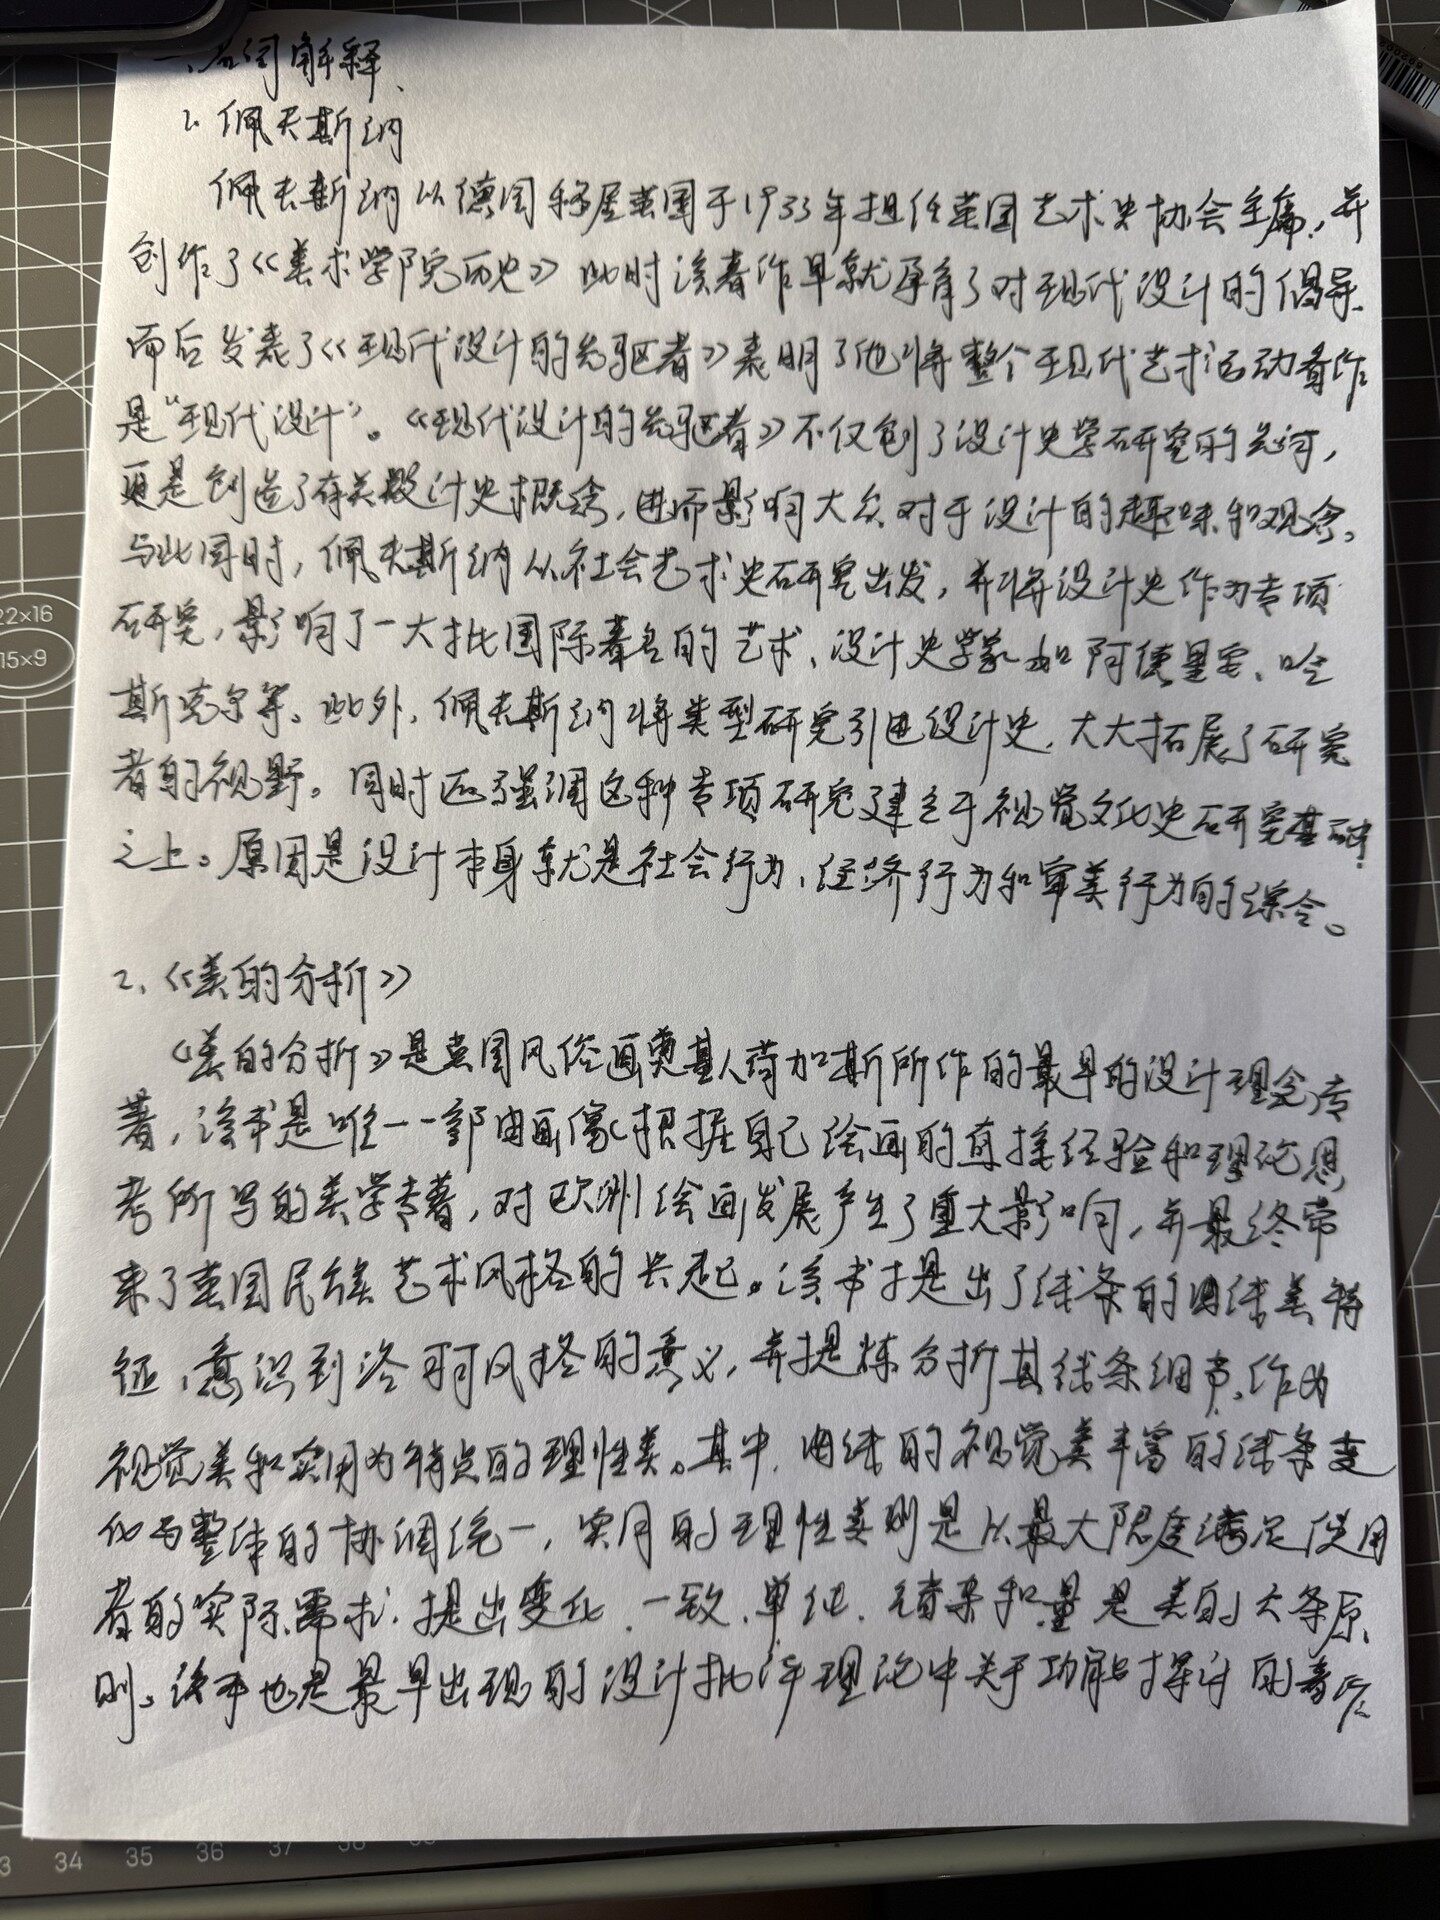 一、名词解释、
1. 佩夫斯纳
佩夫斯纳从德国移居英国于1933年担任英国艺术史协会主席，并
创作了《美术学院历史》此时该著作早就孕育了对现代设计的倡导、
而后发表了《现代设计的先驱者》表明了他将整个现代艺术运动看作
是“现代设计”。《现代设计的先驱者》不仅创了设计史学研究的先河，
更是创造了有关设计史概念，进而影响大众对于设计的趣味和观念。
与此同时，佩夫斯纳从社会艺术史研究出发，并将设计史作为专项
研究，影响了一大批国际著名的艺术、设计史学家如阿德里安、哈
斯克尔等。此外，佩夫斯纳将类型研究引进设计史，大大拓展了研究
者的视野。同时还强调这种专项研究建立于视觉文化史研究基础
之上。原因是设计本身就是社会行为、经济行为和审美行为的综合。
2、《美的分析》
《美的分析》是英国风俗画奠基人荷加斯所作的最早的设计理念专
著，该书是唯一一部由画像根据自己绘画的直接经验和理论思
考所写的美学专著，对欧洲绘画发展产生了重大影响，并最终带
来了英国民族艺术风格的兴起。该书提出了线条的曲线美特
征，意识到洛可可风格的意义，并提炼分析其线条细节、作为
视觉美和实用为特点的理性美。其中，曲线的视觉美丰富的线条变
化与整体的协调统一，实用的理性美则是从最大限度满足使用
者的实际需求．提出变化、一致、单纯、错杂和量是美的大条原
则。该书也是最早出现的设计批评理论中关于功能探讨的著作
22×16
15×9
34 35 36 37 38